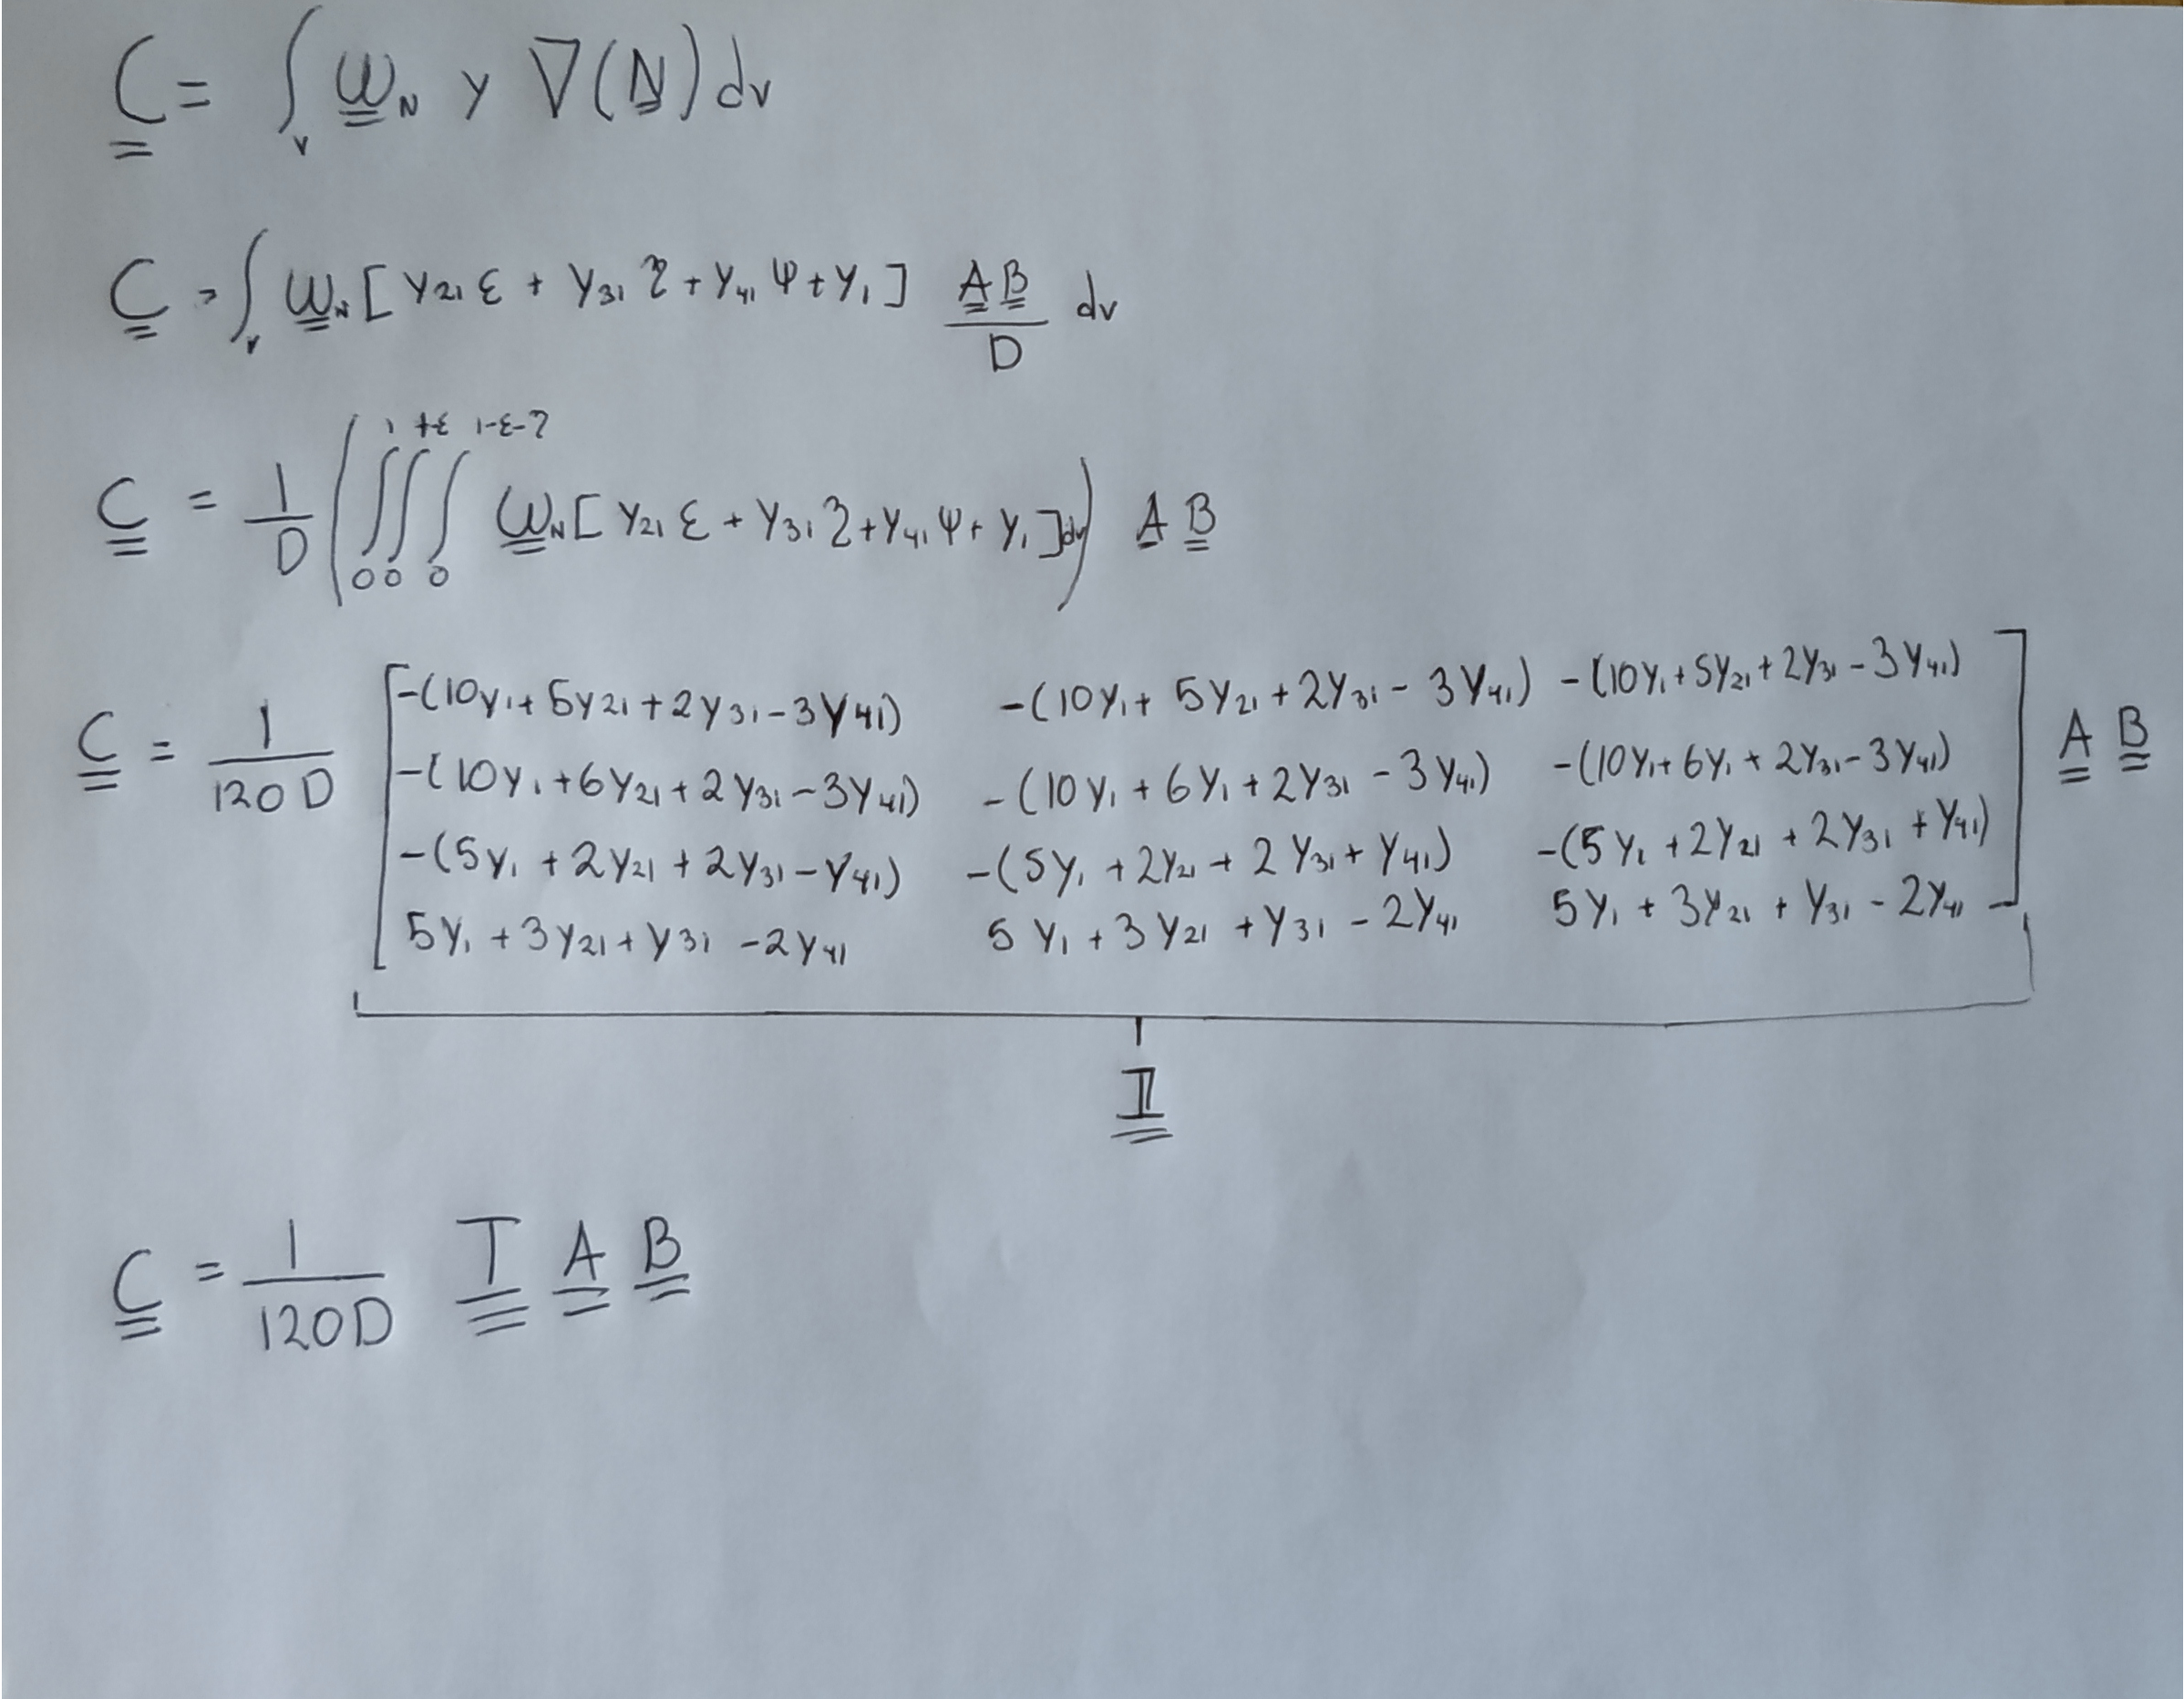 C = ∫v ωN y ∇(N) dv
C = ∫v ωN [ y21 ε + y31 η + y41 ψ + y1 ] A B / D dv
1 1-ε 1-ε-η
C = 1/D ( ∫∫∫ ωN [ y21 ε + y31 η + y41 ψ + y1 ] dv ) A B
0 0 0
-(10y1 + 5y21 + 2y31 - 3y41) -(10y1 + 5y21 + 2y31 - 3y41) -(10y1 + 5y21 + 2y31 - 3y41)
C = 1/120D -(10y1 + 6y21 + 2y31 - 3y41) -(10y1 + 6y1 + 2y31 - 3y41) -(10y1 + 6y1 + 2y31 - 3y41) A B
-(5y1 + 2y21 + 2y31 - y41) -(5y1 + 2y21 + 2y31 + y41) -(5y1 + 2y21 + 2y31 + y41)
5y1 + 3y21 + y31 - 2y41 5y1 + 3y21 + y31 - 2y41 5y1 + 3y21 + y31 - 2y41
I
C = 1/120D T A B